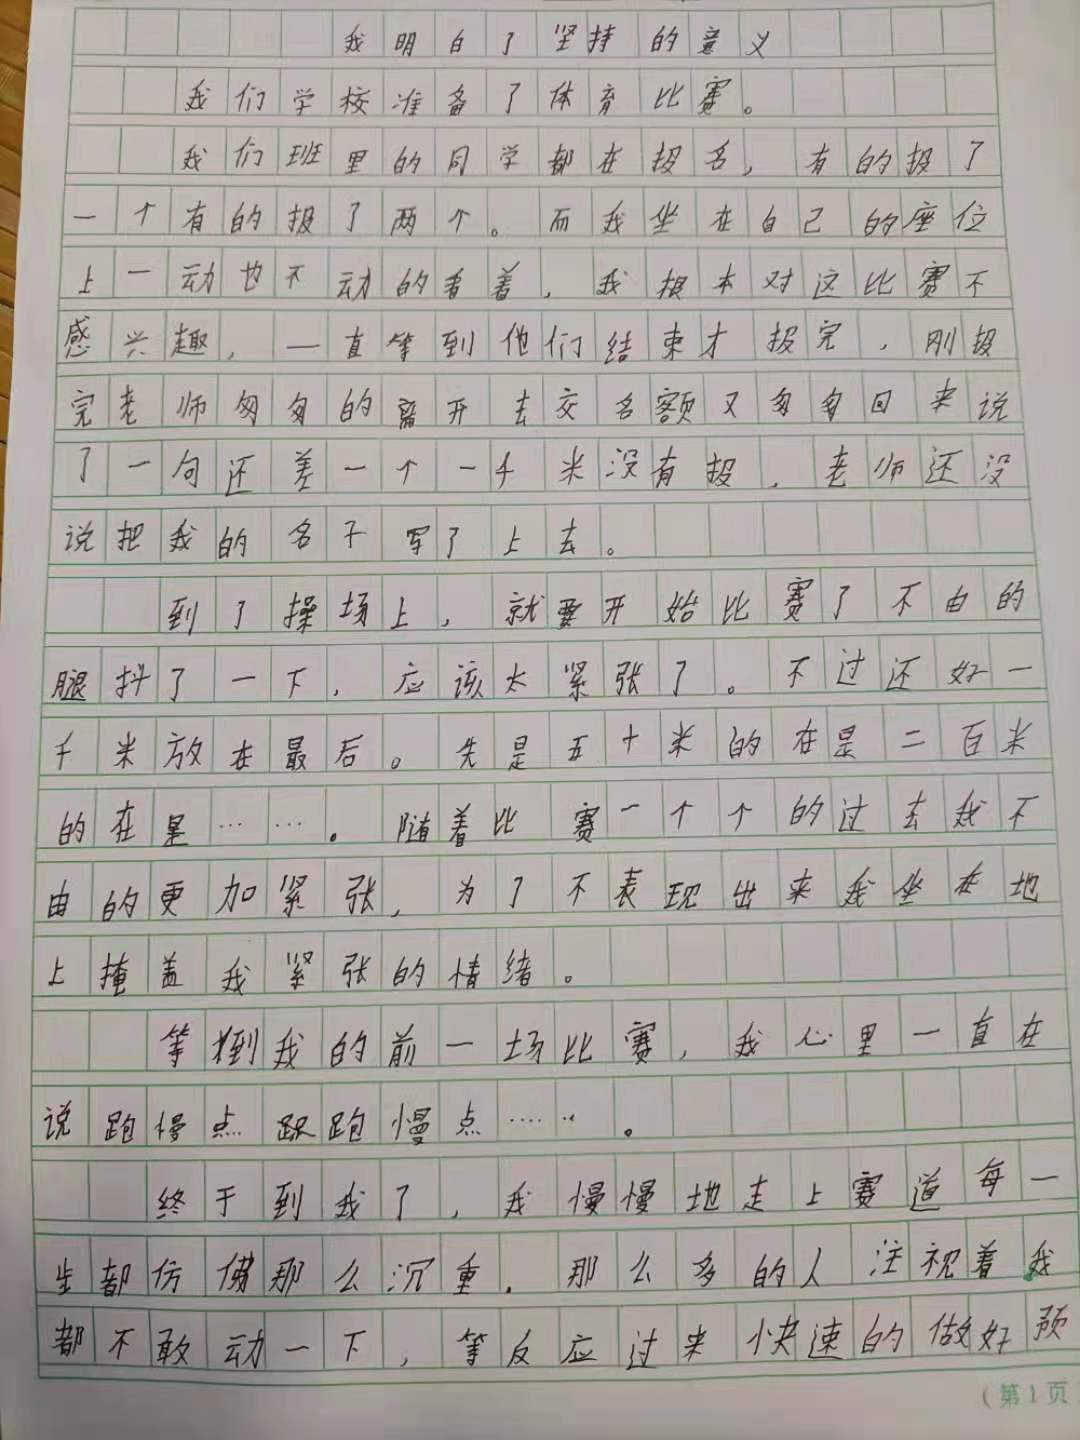 我明白了坚持的意义
我们学校准备了体育比赛。
我们班里的同学都在报名，有的报了
一个有的报了两个。而我坐在自己的座位
上一动也不动的看着，我根本对这比赛不
感兴趣，一直等到他们结束才报完，刚报
完老师匆匆的离开去交名额又匆匆回来说
了一句还差一个一千米没有报，老师还没
说把我的名子写了上去。
到了操场上，就要开始比赛了不由的
腿抖了一下，应该太紧张了。不过还好一
千米放在最后。先是五十米的在是二百米
的在是……。随着比赛一个个的过去我不
由的更加紧张，为了不表现出来我坐在地
上掩盖我紧张的情绪。
等到我的前一场比赛，我心里一直在
说跑慢点跑慢点……。
终于到我了，我慢慢地走上赛道每一
步都仿佛那么沉重。那么多的人注视着我
都不敢动一下，等反应过来快速的做好预
（第1页